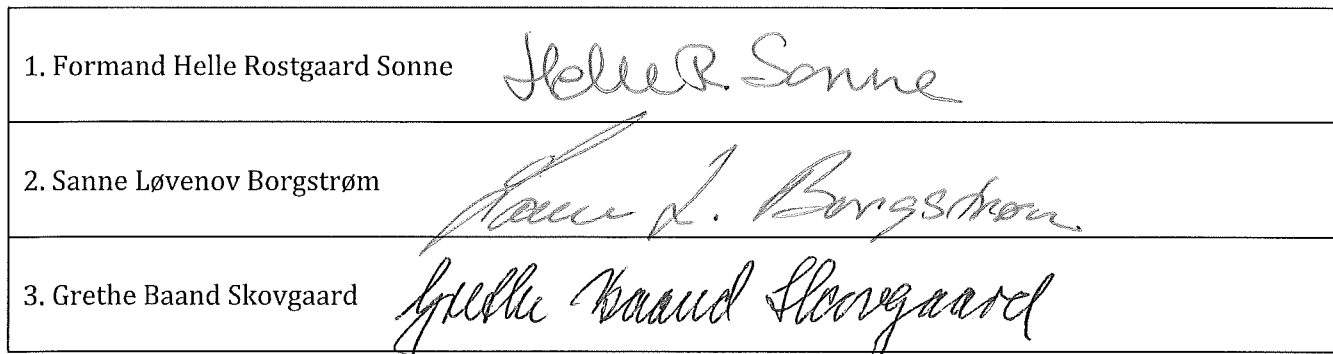 1. Formand Helle Rostgaard Sonne Helle R. Sonne
2. Sanne Løvenov Borgstrøm Sanne L. Borgstrøm
3. Grethe Baand Skovgaard Grethe Baand Skovgaard